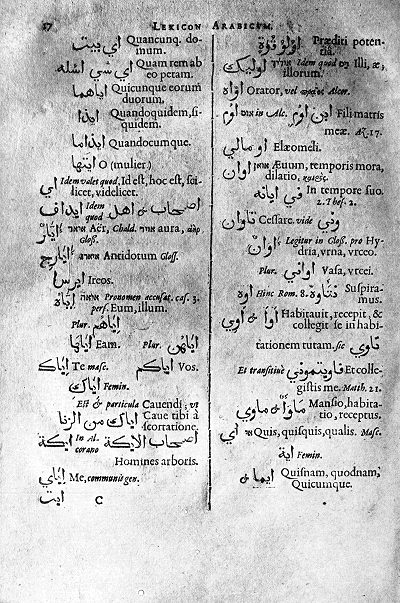 27 LEXICON ARABICUM.
اولو قوة Præditi potentia.
اوليك Idem quod Illi, æ, illorum.
اواه Orator, vel Alcor.
ابن اوم in Alc. Fili matris meæ. Az. 17.
او مالي Elæomeli.
اوان Ævum, temporis mora, dilatio, καιρός.
في ايانه In tempore suo. 2. Thes. 2.
تاوان Cessare. vide وني
اوان Legitur in Gloss. pro Hydria, vrna, vrceo.
Plur. اواني Vasa, vrcei.
اوه Hinc Rom. 8. Suspiramus.
اوا & اوي Habitauit, recepit, & collegit se in habitationem tutam. sic تاوي
Et transitiuè فاويتموني Et collegistis me. Matth. 21.
ماوا & ماوي Mansio, habitatio, receptus.
اي Quis, quisquis, qualis. Masc.
اية Femin.
ايما & Quisnam, quodnam, Quicumque.
اي بيت Quancunq. domum.
اي شي اسله Quam rem abeo petam.
اياهما Quicunque eorum duorum,
ايذا Quandoquidem, siquidem.
ايذاما Quandocumque.
ايتها O (mulier.)
اي Idem valet quod, Id est, hoc est, scilicet, videlicet.
ايداف Idem quod اهل & اصحاب
ايار Aër, Chald. aura, Gloss.
ايارج Antidotum Gloss.
ايرسا Ireos.
اياه Pronomen accusat. cas. 3. pers. Eum, illum.
Plur. اياهم
اياها Eam. Plur. اياهن
اياك Te masc. اياكم Vos.
اياك Femin.
Est & particula Cauendi; vt
اياك من الزنا Caue tibi à scortatione.
ايكة In Alcorano اصحاب الايكة
Homines arboris.
اياي Me, communis gen.
C ايت